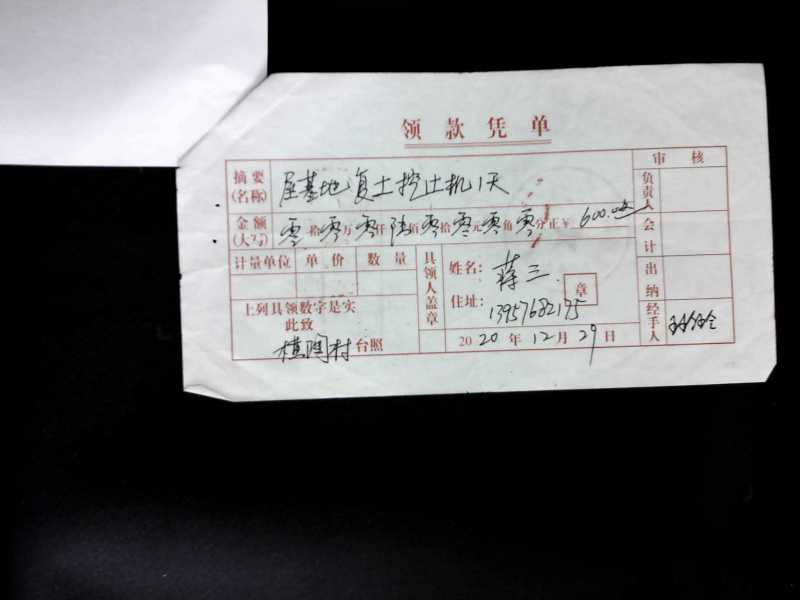 领款凭单
摘要(名称) 屋基地复土挖土机1天
审核
负责人
金额(大写) 零拾零万零仟陆佰零拾零元零角零分正¥600.00
会计
计量单位 单价 数量
具领人盖章
姓名: 蒋三
章
住址: 13957682195
出纳
上列具领数字是实
此致
横陶村台照
2020年12月29日
经手人